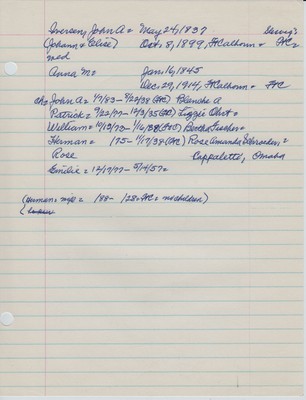 Iversen, John A = May 24, 1837 George's
(Johann & Elise) Oct. 8, 1899, Ft Calhoun = FtC =
md
Anna M = Jan. 16, 1845
Dec. 29, 1914, Ft Calhoun = FtC
ch: John A = 1/7/83 - 8/22/38 (FtC) Blanche A
Patrick = 9/22/77 - 12/3/35 (FtC) Lizzie Ohrt =
William = 10/13/73 - 1/16/38 (FtC) Bertha
Herman = 1875 - 11/7/38 (FtC) Rose Amanda Schroeder =
Rose Cappalette, Omaha
Emilie = 12/17/77 - 5/14/57 =
(Herman = 188 - 1/28 = FtC = no children)
(